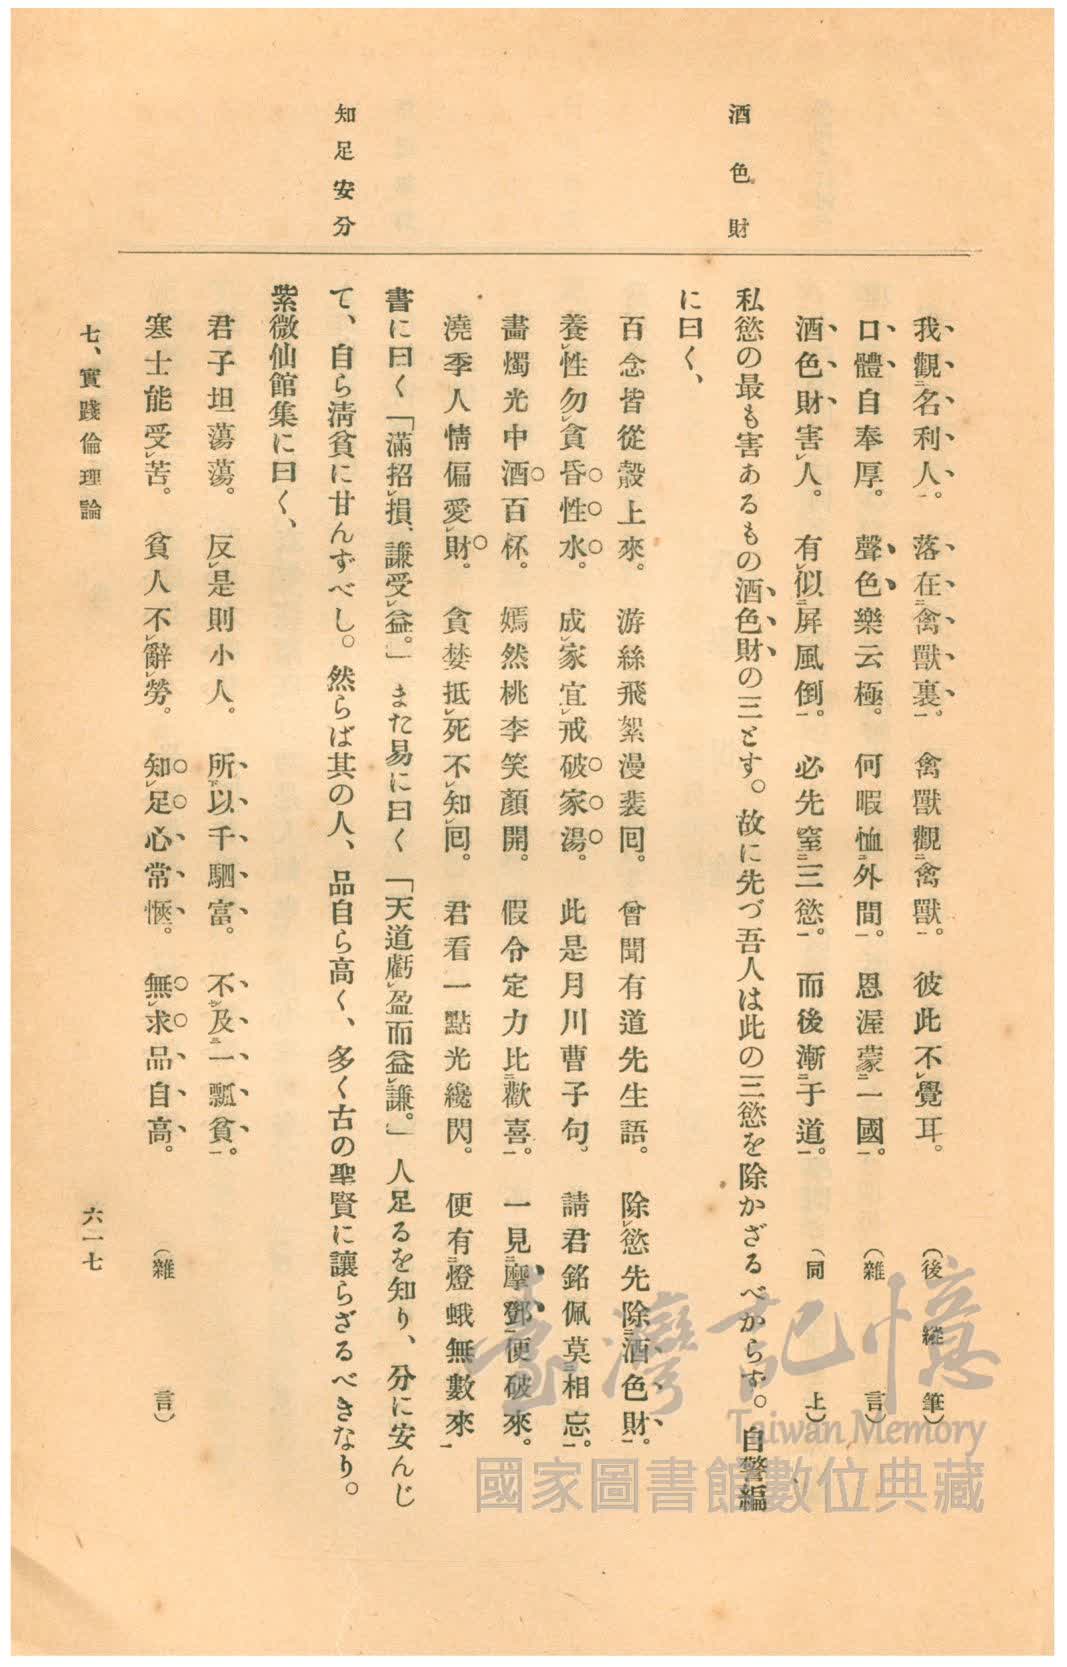 酒色財
知足安分
我觀名利人。落在禽獸裏。禽獸觀禽獸。彼此不覺耳。(後縱筆)
口體自奉厚。聲色樂云極。何暇恤外間。恩渥蒙一國。(雜言)
酒色財害人。有似屏風倒。必先窒三慾。而後漸于道。(同上)
私慾の最も害あるもの酒色財の三とす。故に先づ吾人は此の三慾を除かざるべからず。自警編
に曰く、
百念皆從殼上來。游絲飛絮漫裴囘。曾聞有道先生語。除慾先除酒色財。
養性勿貪昏性水。成家宜戒破家湯。此是月川曹子句。請君銘佩莫相忘。
畵燭光中酒百杯。嫣然桃李笑顏開。假令定力比歡喜。一見摩鄧便破來。
澆季人情偏愛財。貪婪抵死不知囘。君看一點光纔閃。便有燈蛾無數來
書に曰く「滿招損、謙受益。」また易に曰く「天道虧盈而益謙。」人足るを知り、分に安んじ
て、自ら淸貧に甘んずべし。然らば其の人、品自ら高く、多く古の聖賢に讓らざるべきなり。
紫微仙館集に曰く、
君子坦蕩蕩。反是則小人。所以千駟富。不及一瓢貧。
寒士能受苦。貧人不辭勞。知足心常愜。無求品自高。(雜言)
七、實踐倫理論
六一七
臺灣記憶
Taiwan Memory
國家圖書館數位典藏